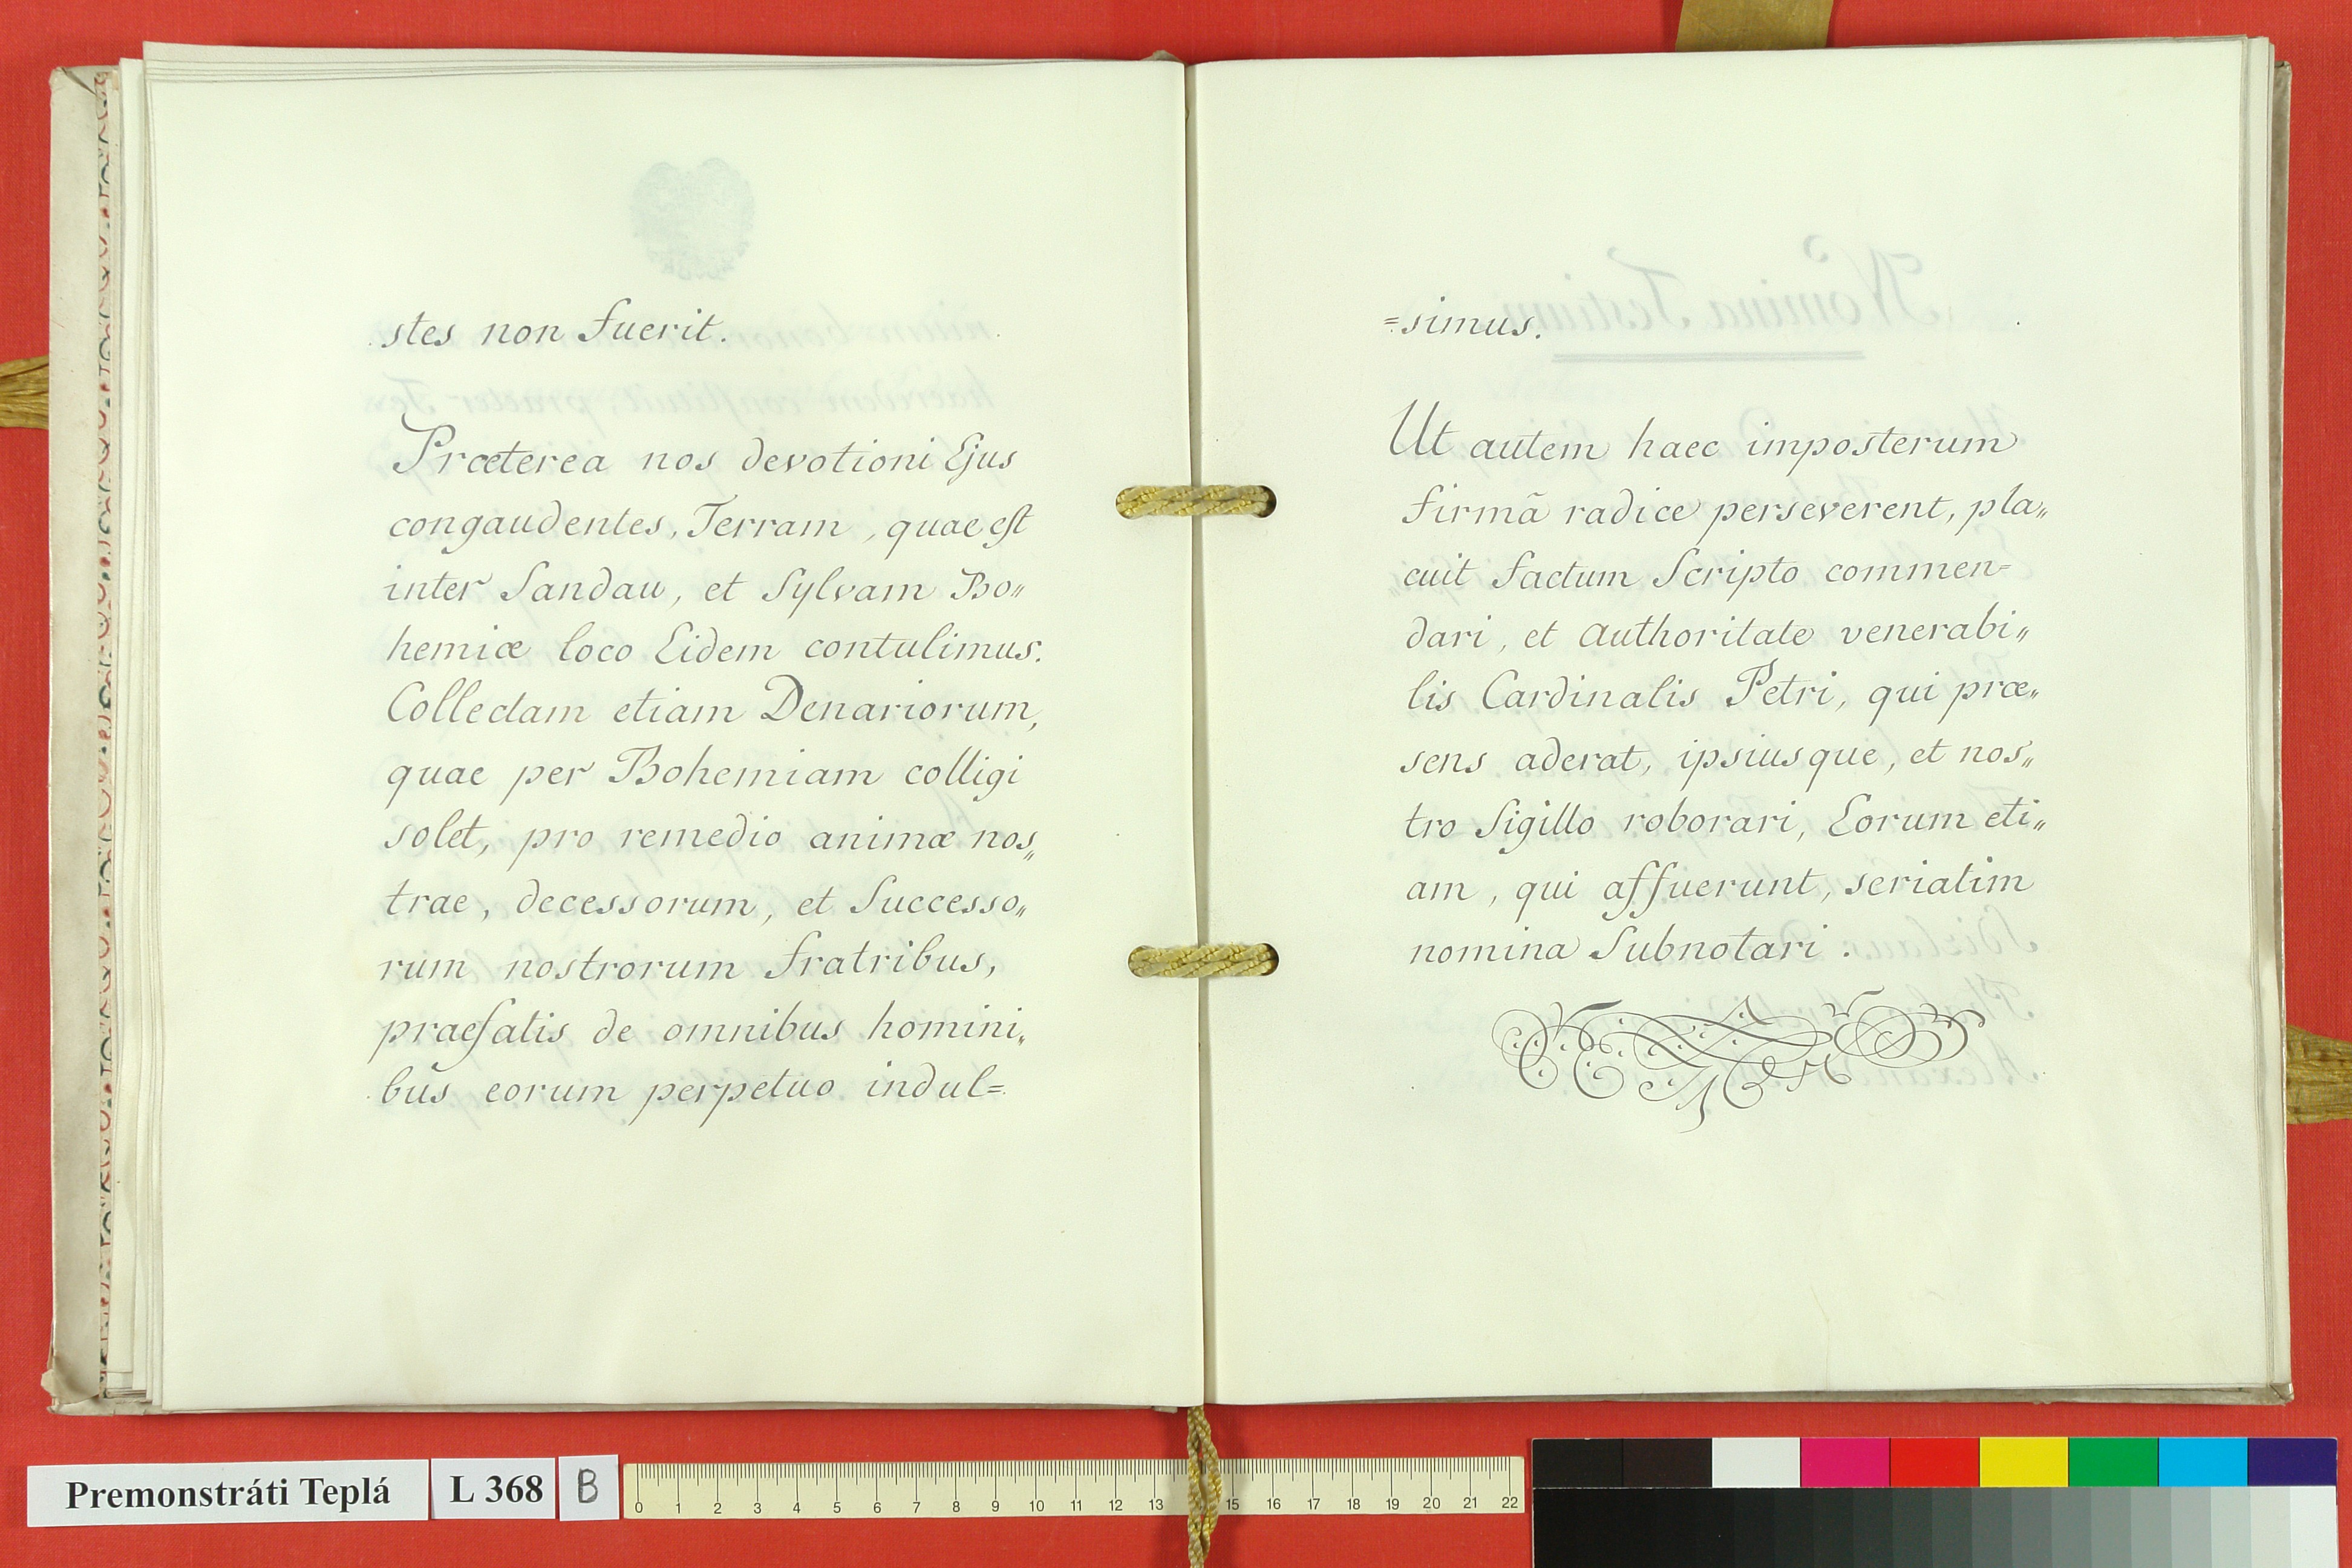 stes non fuerit.
Præterea nos devotioni Ejus
congaudentes, Terram, quae est
inter Sandau, et Sylvam Bo„
hemiæ loco Eidem contulimus.
Collectam etiam Denariorum,
quae per Bohemiam colligi
solet, pro remedio animæ nos„
trae, decessorum, et Successo„
rum nostrorum fratribus,
praefatis de omnibus homini„
bus eorum perpetuo indul=
=simus.
Ut autem haec imposterum
firmâ radice perseverent, pla„
cuit factum Scripto commen=
dari, et authoritate venerabi„
lis Cardinalis Petri, qui præ„
sens aderat, ipsiusque, et nos„
tro Sigillo roborari, Eorum eti„
am, qui affuerunt, seriatim
nomina Subnotari.
Premonstráti Teplá L 368 B
0 1 2 3 4 5 6 7 8 9 10 11 12 13 15 16 17 18 19 20 21 22